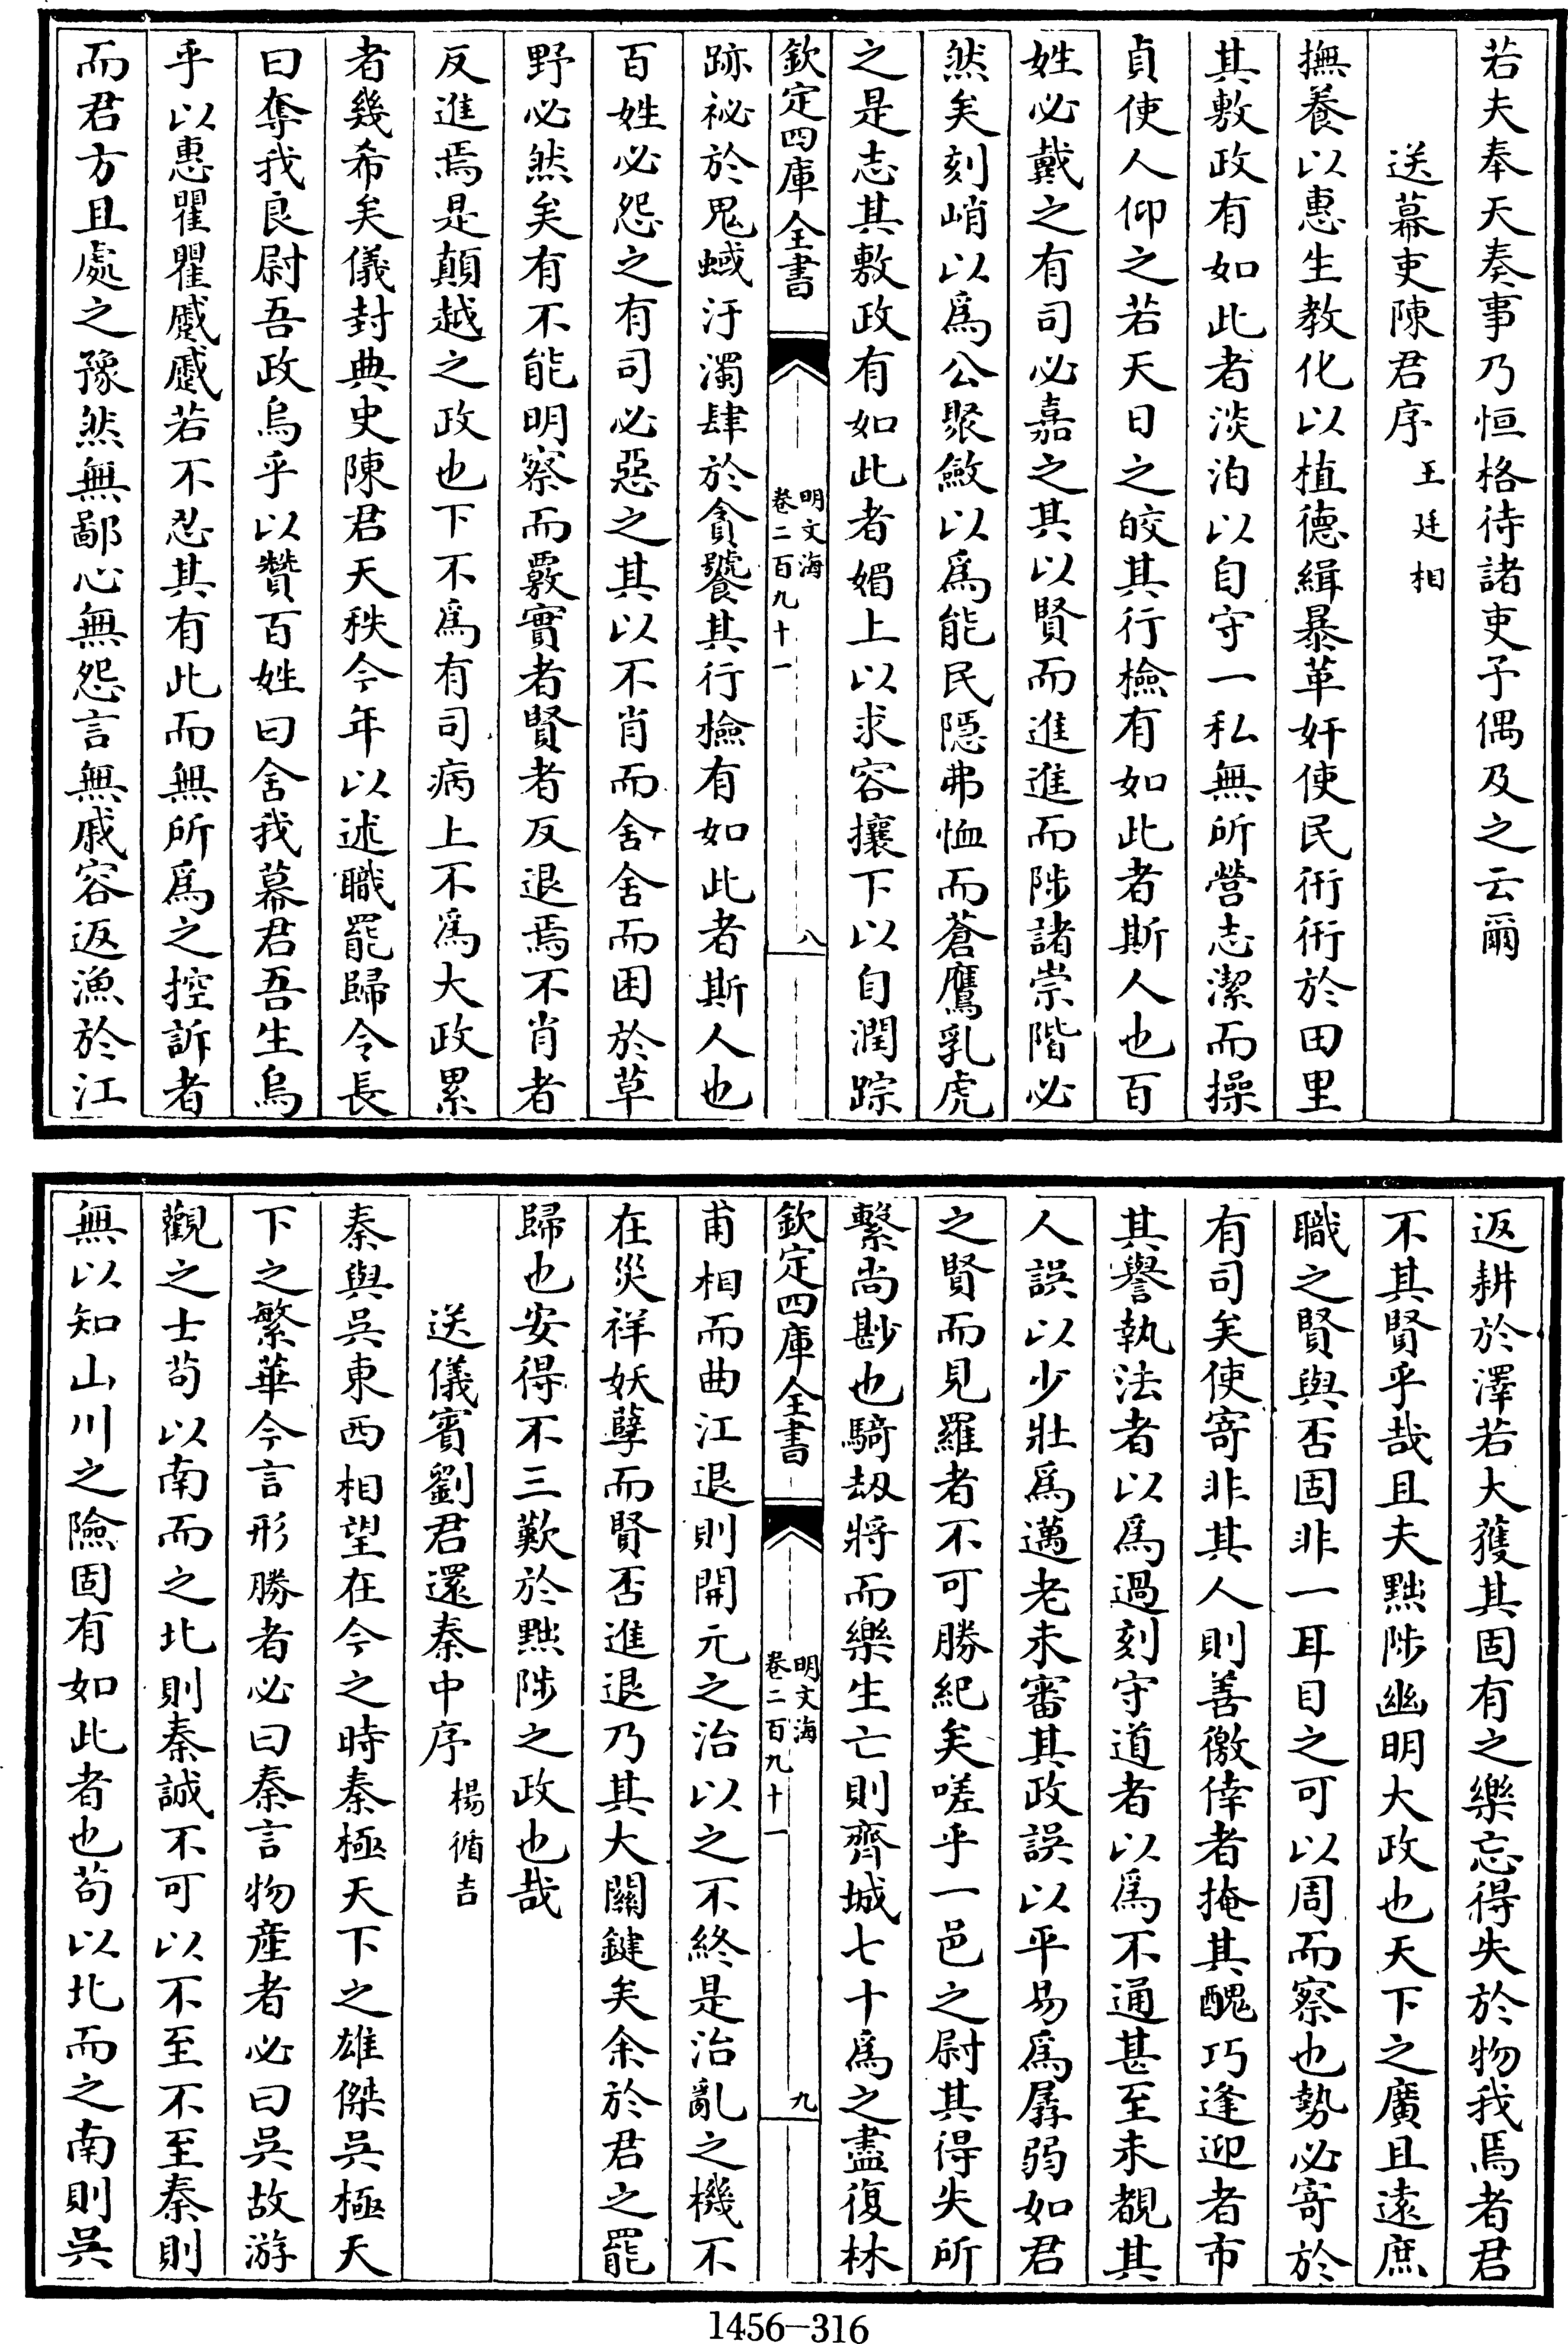 若夫奉天奏事乃恒格待諸吏予偶及之云爾
送幕吏陳君序 王廷相
撫養以惠生教化以植德緝暴革奸使民衎衎於田里
其敷政有如此者淡泊以自守一私無所營志潔而操
貞使人仰之若天日之皎其行檢有如此者斯人也百
姓必戴之有司必嘉之其以賢而進進而陟諸崇階必
然矣刻峭以為公聚斂以為能民隱弗恤而蒼鷹乳虎
之是志其敷政有如此者媚上以求容攘下以自潤踪
欽定四庫全書 明文海 卷二百九十一 八
跡祕於鬼蜮汙濁肆於貪饕其行檢有如此者斯人也
百姓必怨之有司必惡之其以不肖而舍舍而困於草
野必然矣有不能明察而覈實者賢者反退焉不肖者
反進焉是顛越之政也下不為有司病上不為大政累
者幾希矣儀封典史陳君天秩今年以述職罷歸令長
曰奪我良尉吾政烏乎以贊百姓曰舍我幕君吾生烏
乎以惠瞿瞿慼慼若不忍其有此而無所為之控訴者
而君方且處之豫然無鄙心無怨言無戚容返漁於江
返耕於澤若大獲其固有之樂忘得失於物我焉者君
不其賢乎哉且夫黜陟幽明大政也天下之廣且遠庶
職之賢與否固非一耳目之可以周而察也勢必寄於
有司矣使寄非其人則善徼倖者掩其醜巧逢迎者市
其譽執法者以為過刻守道者以為不通甚至未覩其
人誤以少壯為邁老未審其政誤以平易為孱弱如君
之賢而見羅者不可勝紀矣嗟乎一邑之尉其得失所
繫尚尠也騎劫將而樂生亡則齊城七十為之盡復林
欽定四庫全書 明文海 卷二百九十一 九
甫相而曲江退則開元之治以之不終是治亂之機不
在災祥妖孽而賢否進退乃其大關鍵矣余於君之罷
歸也安得不三歎於黜陟之政也哉
送儀賓劉君還秦中序 楊循吉
秦與吳東西相望在今之時秦極天下之雄傑吳極天
下之繁華今言形勝者必曰秦言物產者必曰吳故游
觀之士苟以南而之北則秦誠不可以不至不至秦則
無以知山川之險固有如此者也苟以北而之南則吳
1456-316